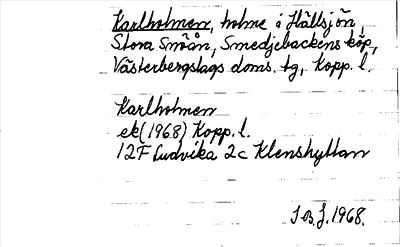 Karlholmen, holme i Hällsjön,
Stora Snöån, Smedjebackens köp,
Västerbergslags doms. tg, Kopp. l.
Karlholmen
ek (1968) Kopp. l.
12F Ludvika 2c Klenshyttan
I.B.J. 1968.